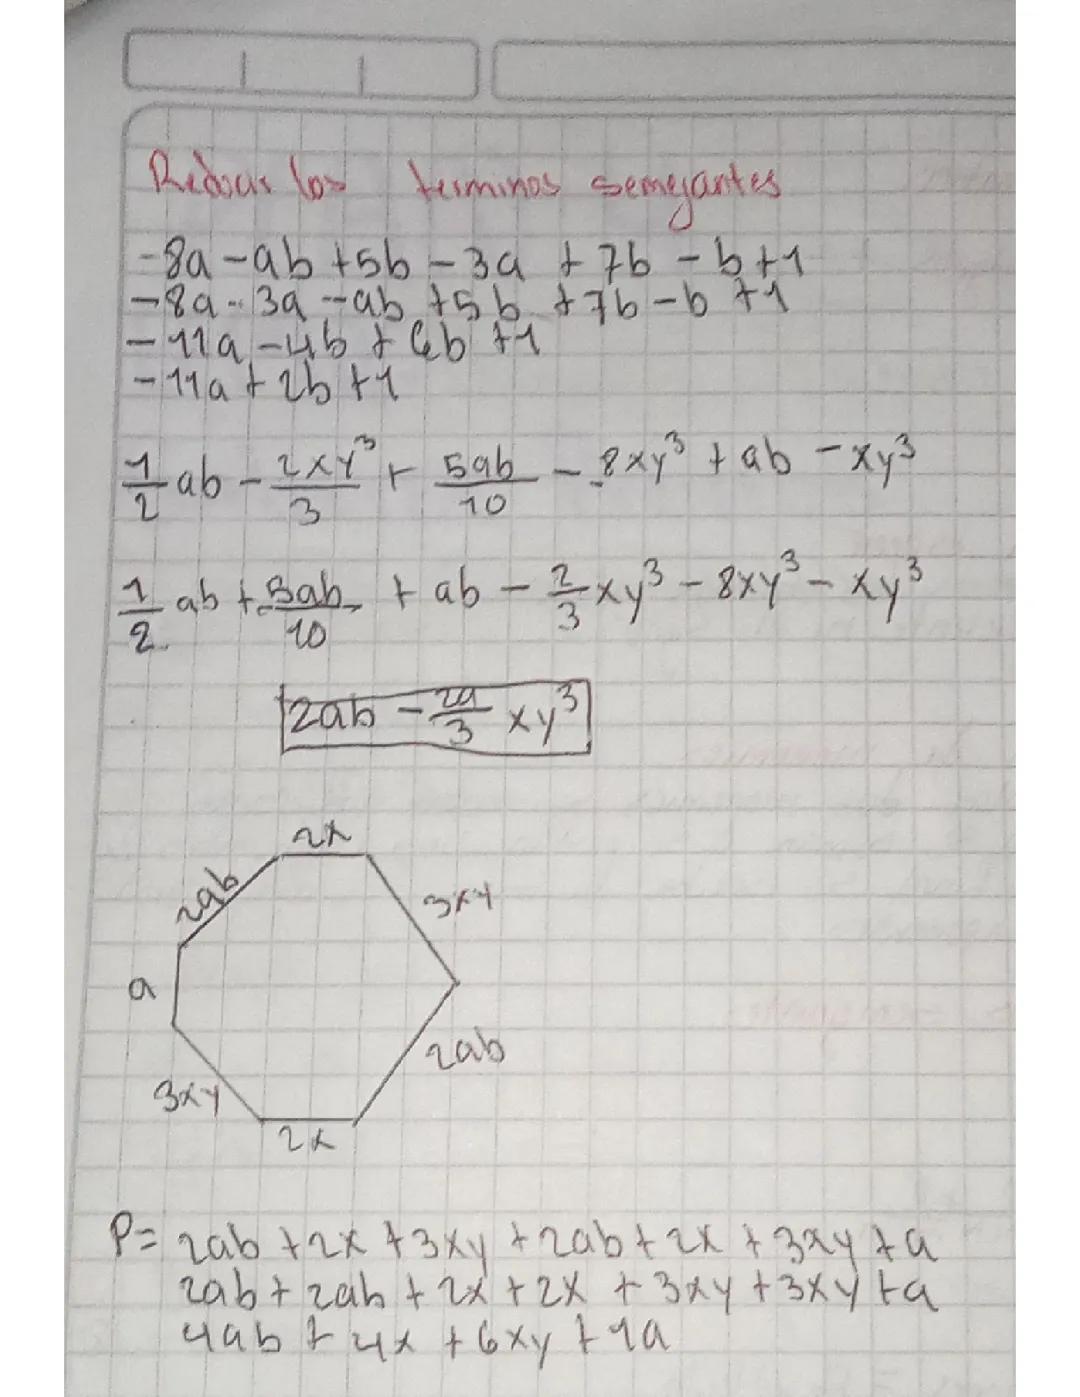 Reducir los terminos semejantes
-8a - ab + 5b - 3a + 7b - b + 1
-8a - 3a - ab + 5b + 7b - b + 1
-11a - 4b + 6b + 1
-11a + 2b + 1
1/2 ab - 2xy³/3 + 5ab/10 - 8xy³ + ab - xy³
1/2 ab + 5ab/10 + ab - 2/3 xy³ - 8xy³ - xy³
2ab - 29/3 xy³
2x
2ab
3xy
a
2ab
3xy
2x
P= 2ab + 2x + 3xy + 2ab + 2x + 3xy + a
2ab + 2ab + 2x + 2x + 3xy + 3xy + a
4ab + 4x + 6xy + 1a